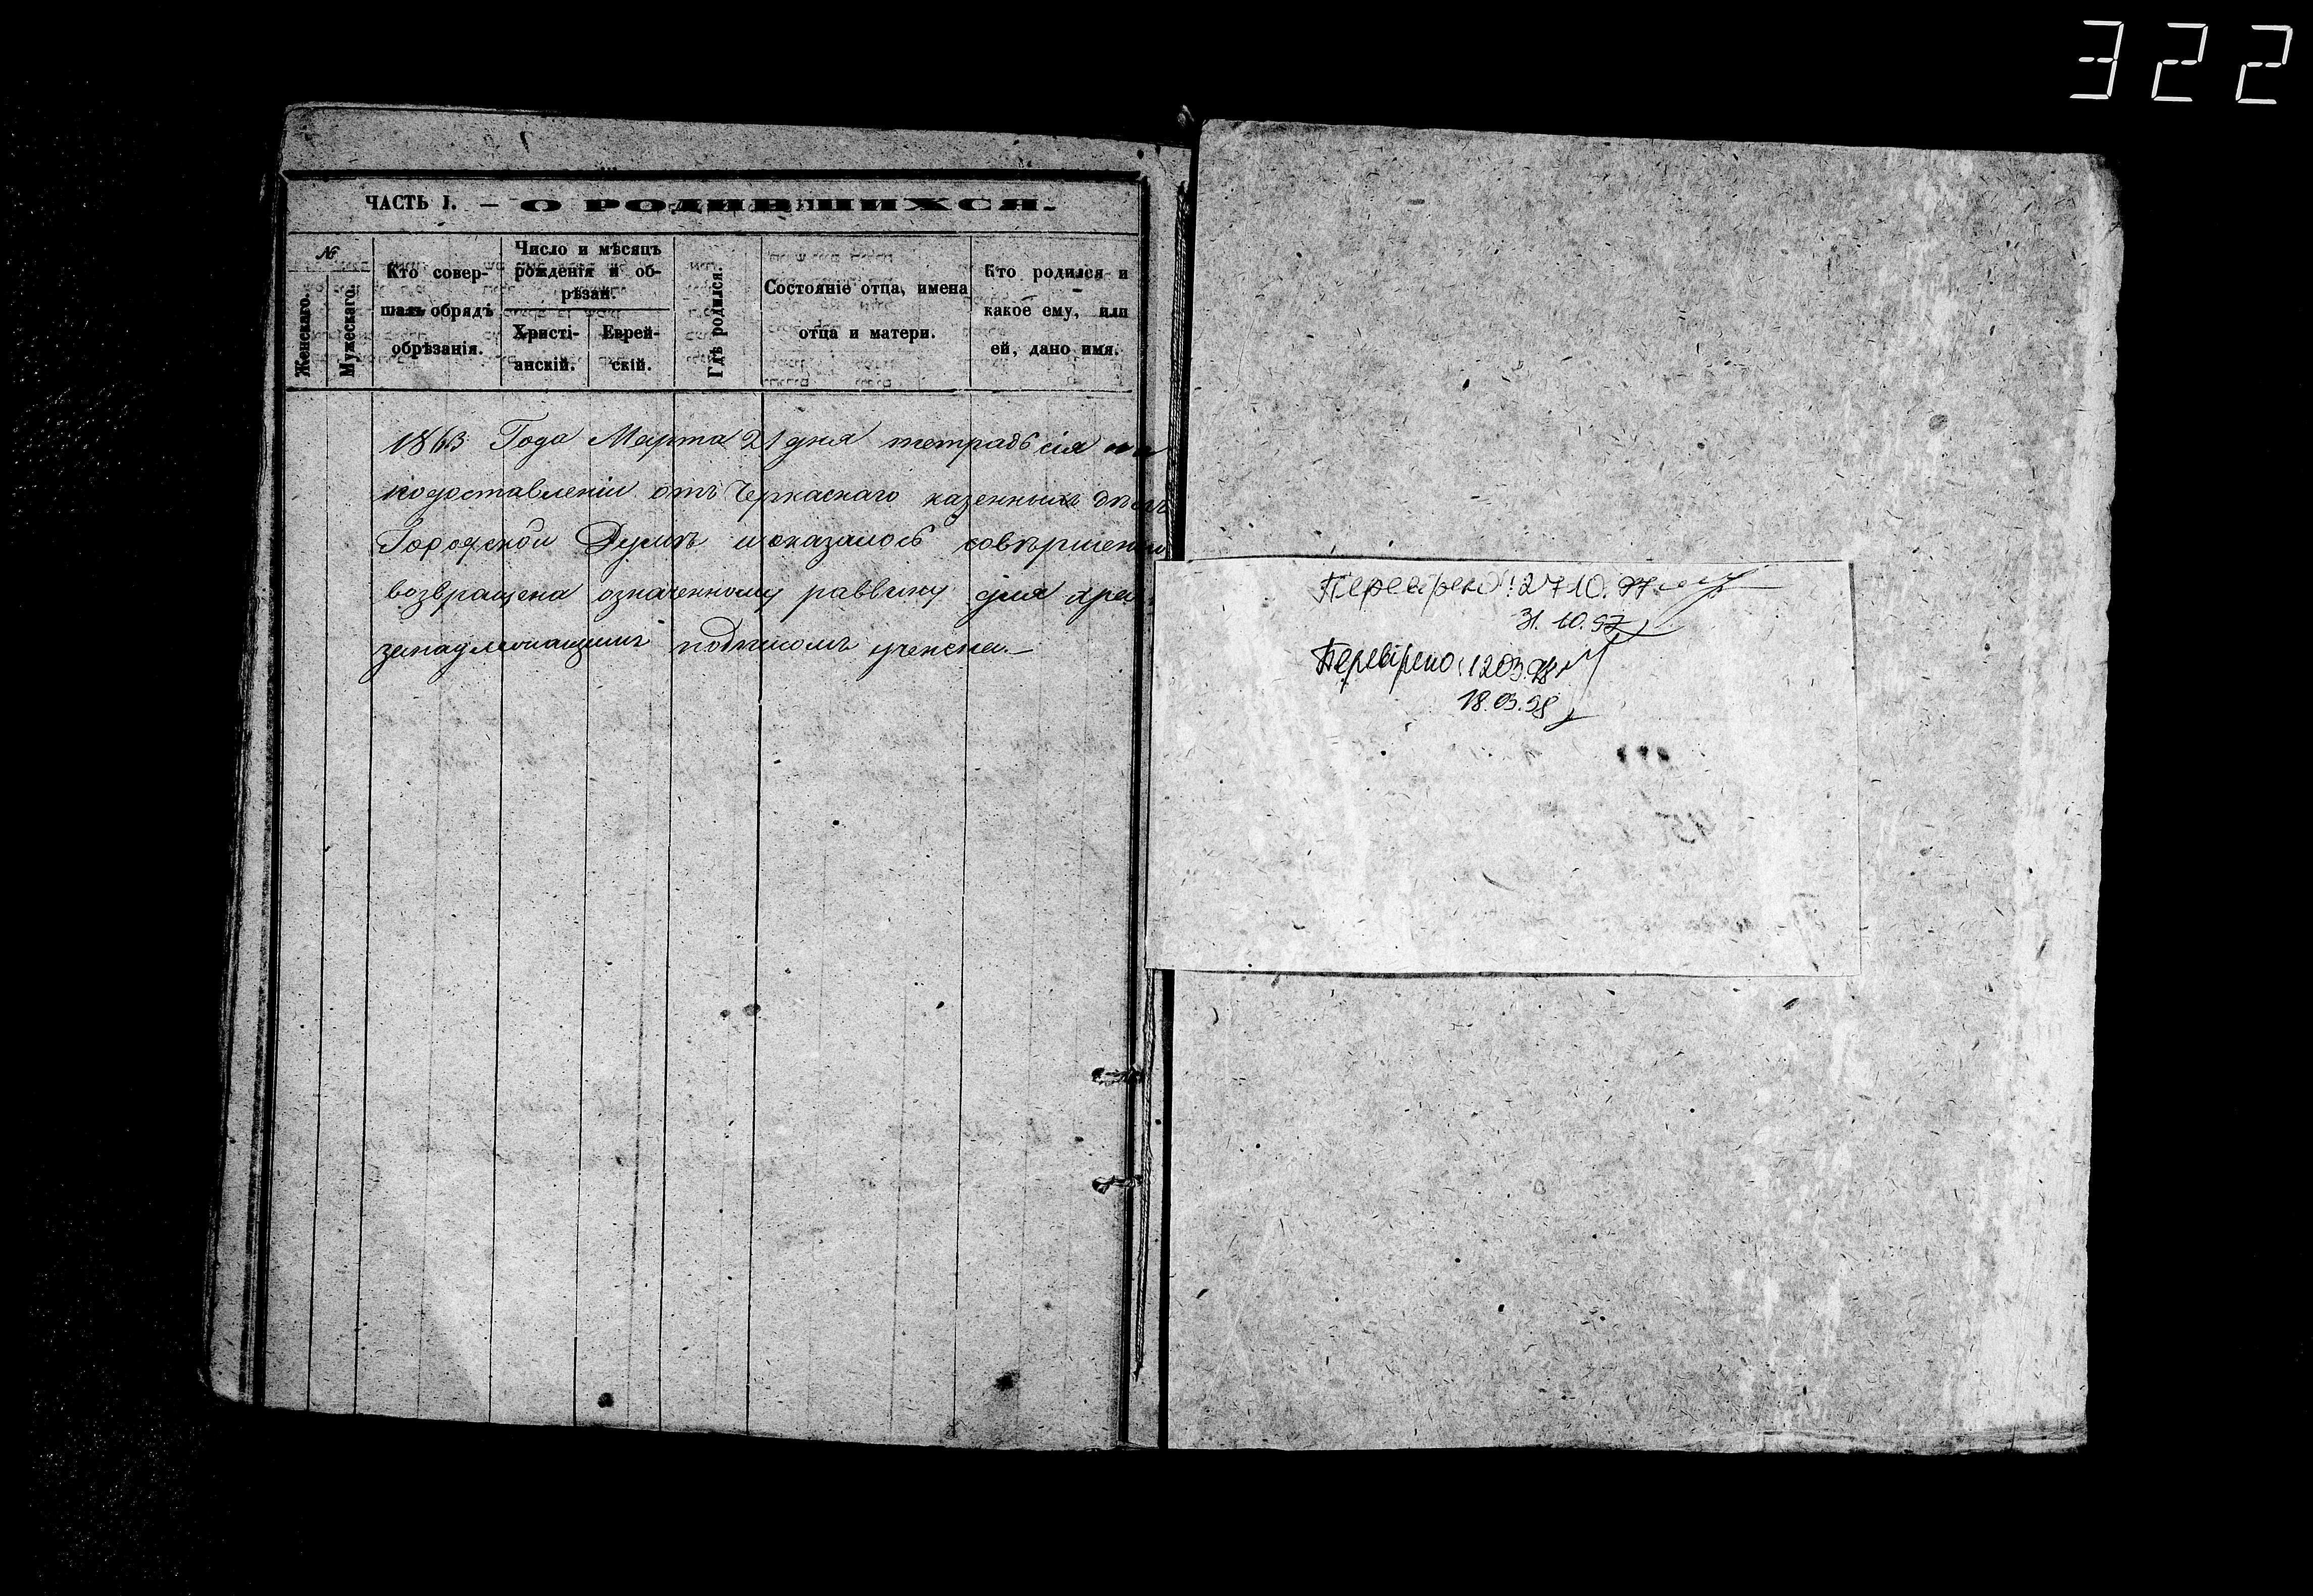 322
ЧАСТЬ I. — О РОДИВШИХСЯ.
№
Женскаго.
Мужескаго.
Кто совер-
шалъ обрядъ
обрѣзанія.
Число и мѣсяцъ
рожденія и об-
рѣзан.
Христі-
анскій.
Еврей-
скій.
Гдѣ родился.
Состояніе отца, имена
отца и матери.
Кто родился и
какое ему, или
ей, дано имя.
1863 Года Марта 21 дня тетрадь сія
отъ Черкаскаго казенныхъ
Городской Думѣ и оказалось
возвращена означенному раввину для
подписомъ
Перевірено: 27.10.97
31.10.97
Перевірено: 12.03.98
18.03.98